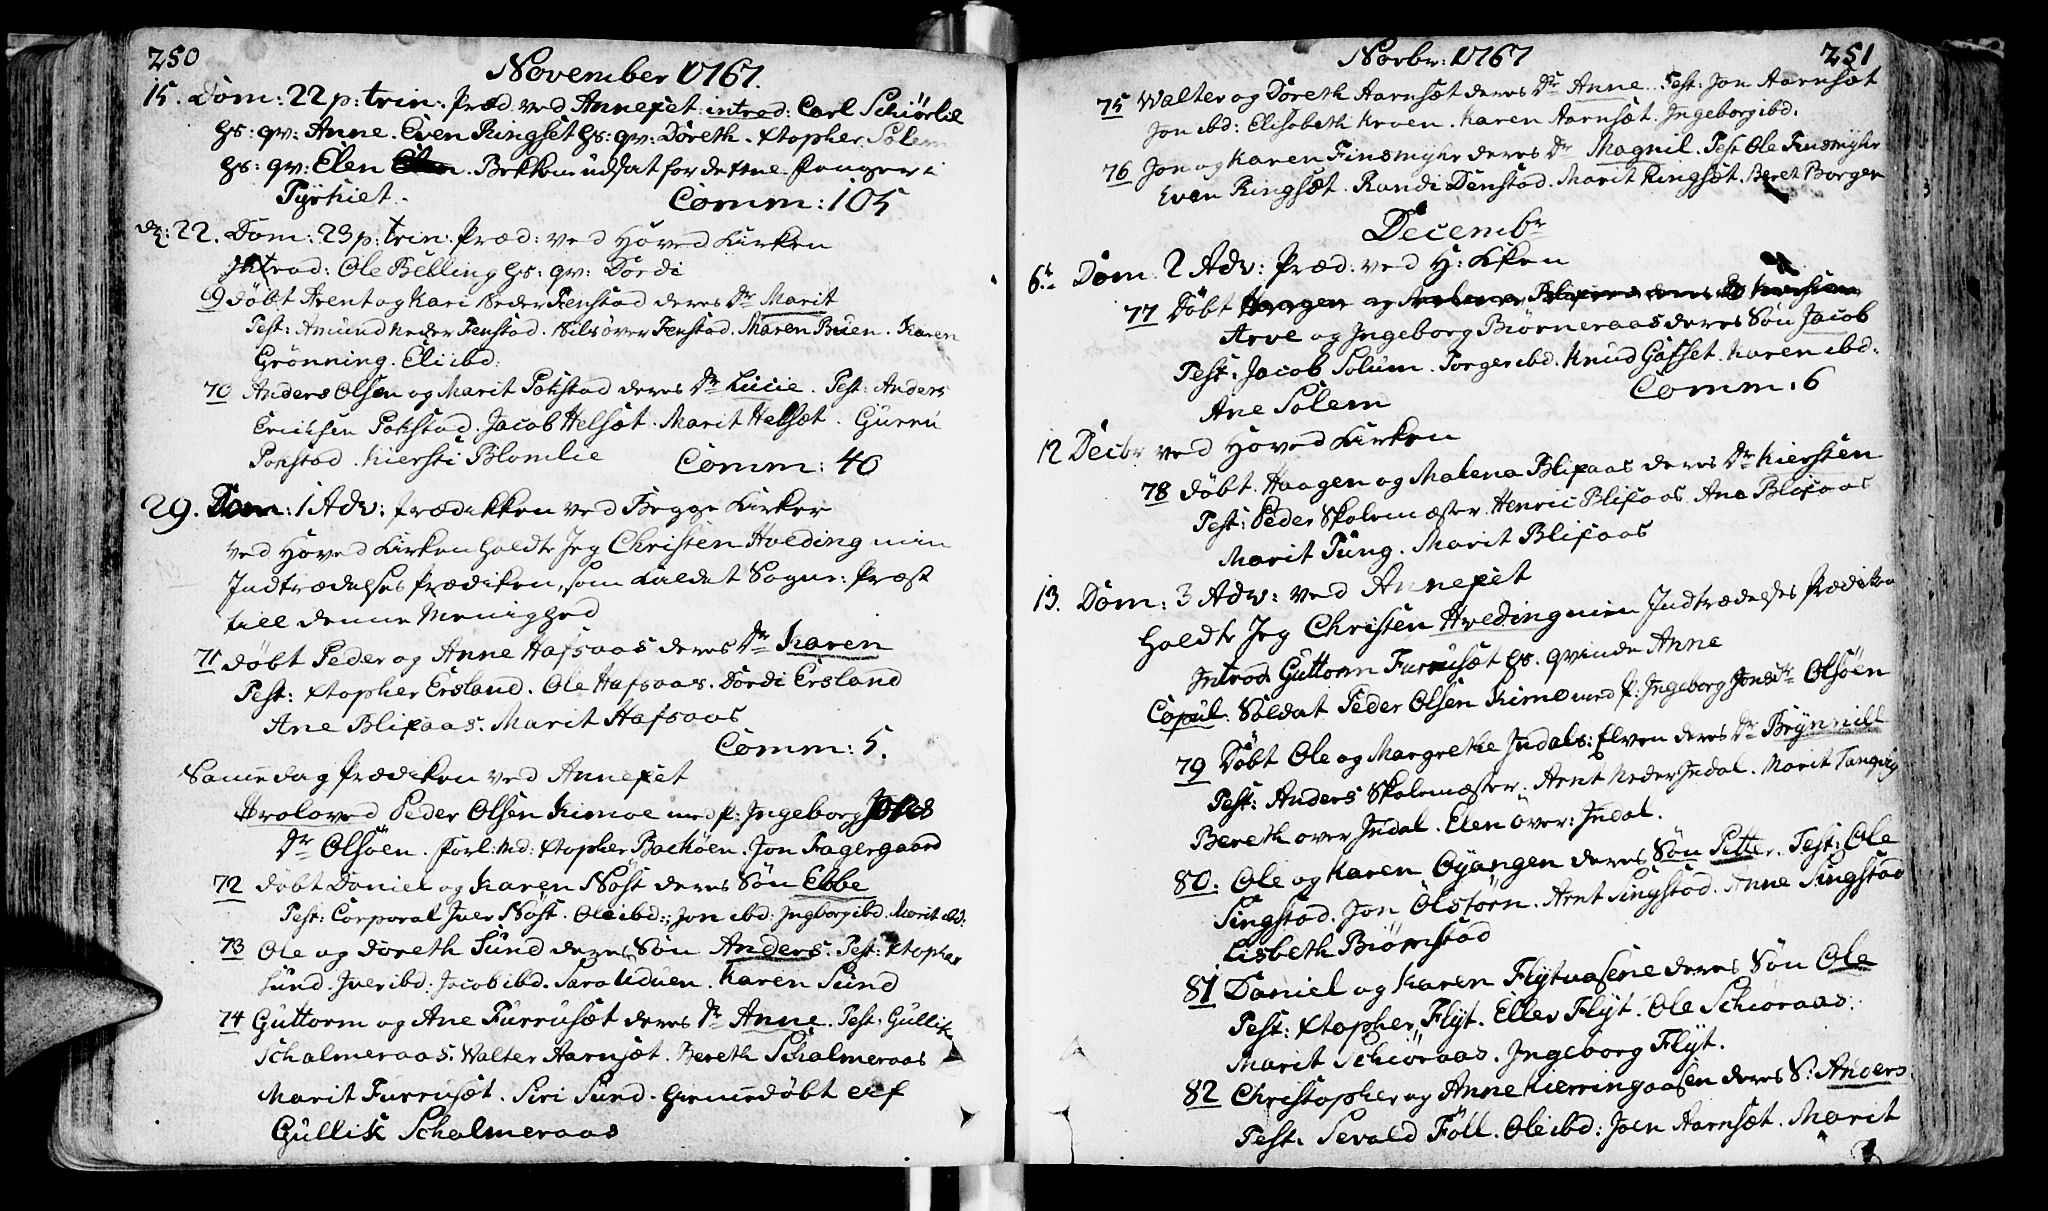 250
November 1767.
15. Dom: 22 p: trin: Præd ved Annexet. introd: Carl Schiørlie
hs: qv: Anne. Even Ringset hs: qv: Döreth. Xtopher Solem
hs: qv: Elen. Bekken udsat for dettne fanger i
Tyrkiet. Comm: 105
d: 22. Dom: 23 p: trin: Præd: ved Hoved Kirken
Introd: Ole Bebling hs: qv: Dordi
69 Döbt Arent og Kari Neder Fenstad deres Dr Marit
Test: Amund Neder Fenstad. Nils över Fenstad. Maren Buen. Karen
Grönning. Eli ibd:
70 Anders Olsen og Marit Pokstad deres Dr Lucie. Test: Anders
Erichsen Pokstad. Jacob Helsæt. Marit Helsæt. Guru
Pokstad. Kiersti Blomlie Comm: 40
29. Dom: 1 Adv: Prædikken ved Begge Kirker
ved Hoved Kirken holdte Jeg Christen Hveding min
Indtrædelses Prædiken, som kaldet Sogne: Præst
till denne Menighed
71 döbt Peder og Anne Hafsaas deres Dr Karen
Test: Xtopher Ersland. Ole Hafsaas. Dordi Ersland
Ane Blixaas. Marit Hafsaas
Comm: 5.
Samme dag Prædiken ved Annexet
Troloved Peder Olsen Kimoe med P: Ingeborg Jons
Dr Olsöen. forl: Md: Xtopher Bachöen. Jon Fagergaard
72 döbt Daniel og Karen Nöst deres Sön Ebbe
Test: Corporal Iver Nöst. Ole ibd:, Jon ibd: Ingborg ibd. Marit ibd:
73 Ole og Doreth Sund deres Sön Anders. Test: Xtopher
Sund. Iver ibd: Jacob ibd. Sara Uduen. Karen Sund
74 Guttorm og Ane Furrusæt deres Dr Anne. Test: Gullik
Schalmeraas. Walter Aarnsæt. Bereth Schalmeraas
Marit Furrusæt. Siri Sund. hiemedöbt af
Gullik Schalmeraas
Novbr: 1767 251
75 Walter og Döreth Aarnsæt deres Dr Anne. Test: Jon Aarnsæt
Jon ibd: Elisabeth Kroen. Karen Aarnsæt. Ingeborg ibd.
76 Jon og Karen Finsmyhr deres Dr Magnil. Test Ole Finsmyhr
Even Ringsæt. Randi Denstad. Marit Ringsæt. Beret Borgen
Decembr
6t Dom 2 Adv: Præd: ved H: Kken
77 Döbt
Arve og Ingeborg Biørneraas deres Sön Jacob
Test: Jacob Solum. Torger ibd. Knud Gafset. Karen ibd.
Ane Solem Comm: 6
12 Decbr ved Hoved Kirken
78 döbt. Haagen og Malena Blixaas deres Dr Kiersten
Test: Peder Skolemæster. Henric Blixaas. Ane Blixaas
Marit Pung. Marit Blixaas
13. Dom: 3 Adv: ved Annexet
holdte Jeg Christen Hveding min Indtrædelses Prædiken
Introd. Guttorm Furrusæt hs. qvinde Anne
Copul. Soldat Peder Olsen Kimo med P: Ingeborg Jonsdr Olsöen
79 Döbt Ole og Margrethe Indals: Elven deres Dr Brynnill
Test: Anders Skolemæster. Arnt Neder Indal. Marit Tangvig
Bereth over Indal. Elen över: Indal.
80. Ole og Karen Oyangen deres Sön Petter. Test: Ole
Singstad. Jon Olstörn. Arnt Singstad. Anne Singstad
Lisbeth Biørnstad
81 Daniel og Karen Flytvasene deres Sön Ole
Test: Xtopher Flyt. Ellev Flyt. Ole Schiøraas.
Marit Schiøraas. Ingeborg Flyt.
82 Christopher og Anne Kierringaasen deres S: Anders.
Test. Sevald Föll. Ole ibd: Joen Aarnsæt. Marit